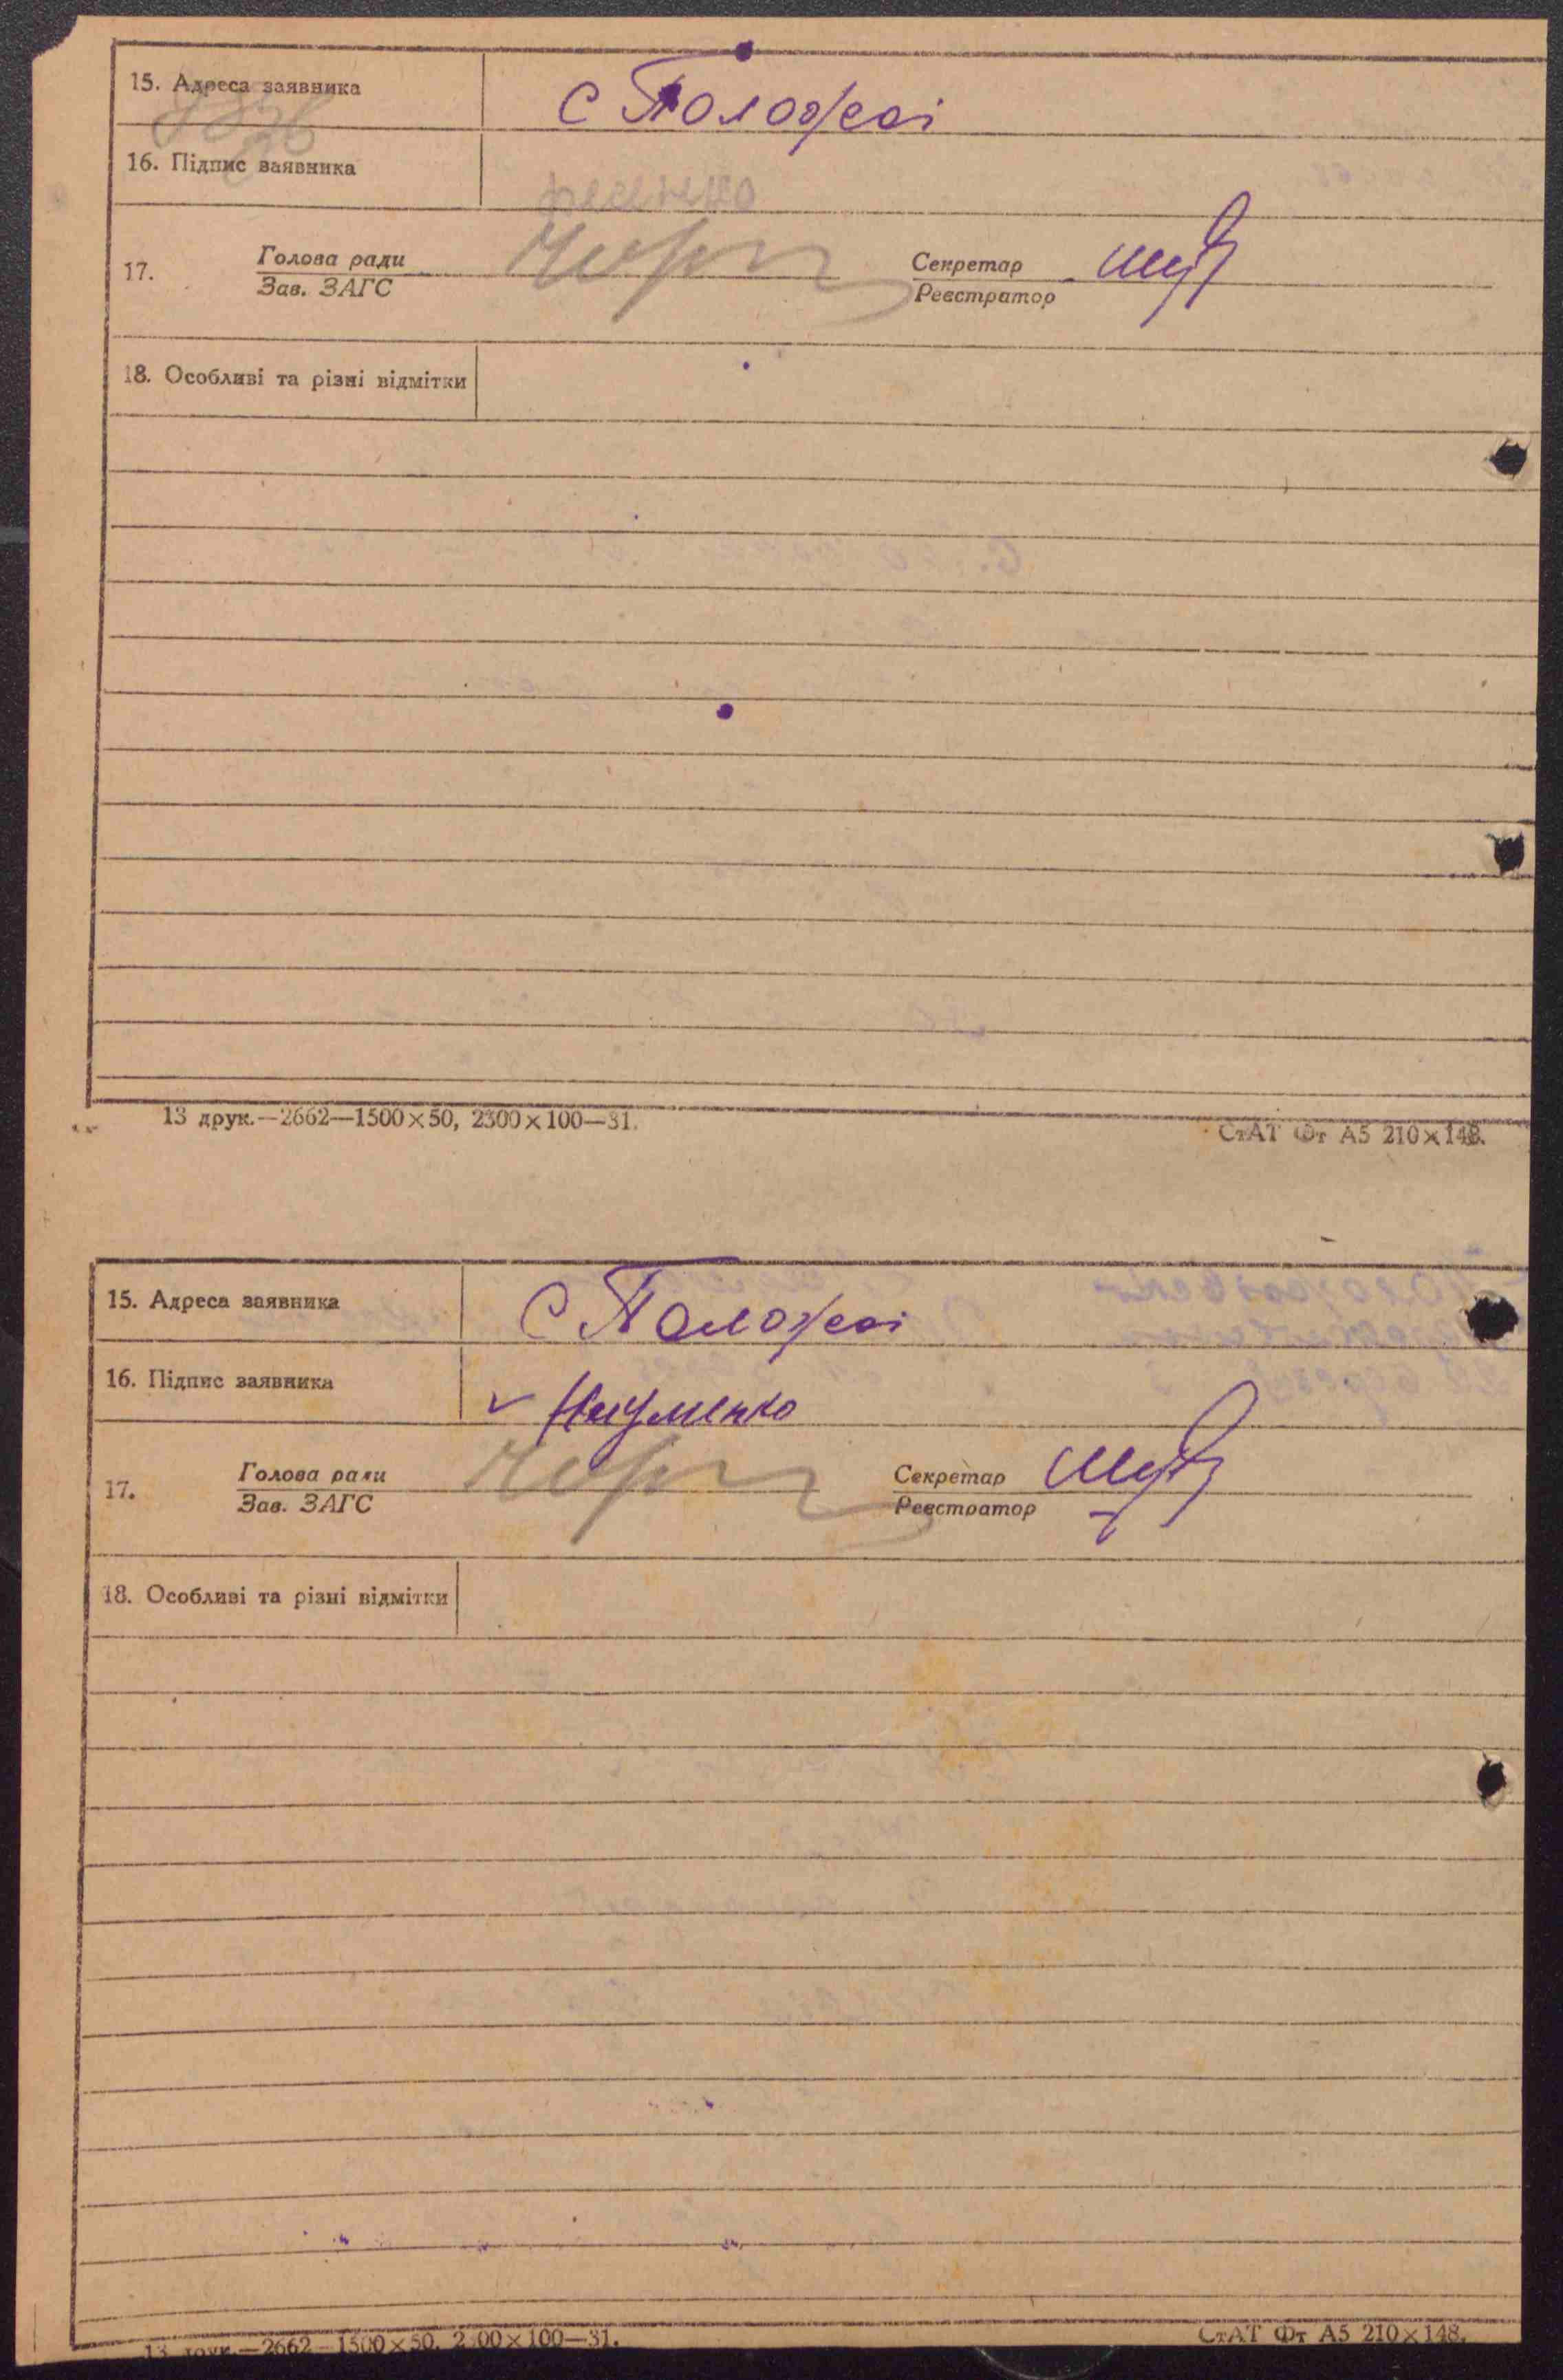 15. Адреса заявника С Положаі
16. Підпис заявника
17. Голова ради Секретар
Зав. ЗАГС Реєстратор
18. Особливі та різні відмітки
13 друк.—2662—1500×50, 2300×100—31.
СтАТ Фт А5 210×148.
15. Адреса заявника С Положаі
16. Підпис заявника Науменко
17. Голова ради Секретар
Зав. ЗАГС Реєстратор
18. Особливі та різні відмітки
13 друк.—2662—1500×50, 2300×100—31.
СтАТ Фт А5 210×148.